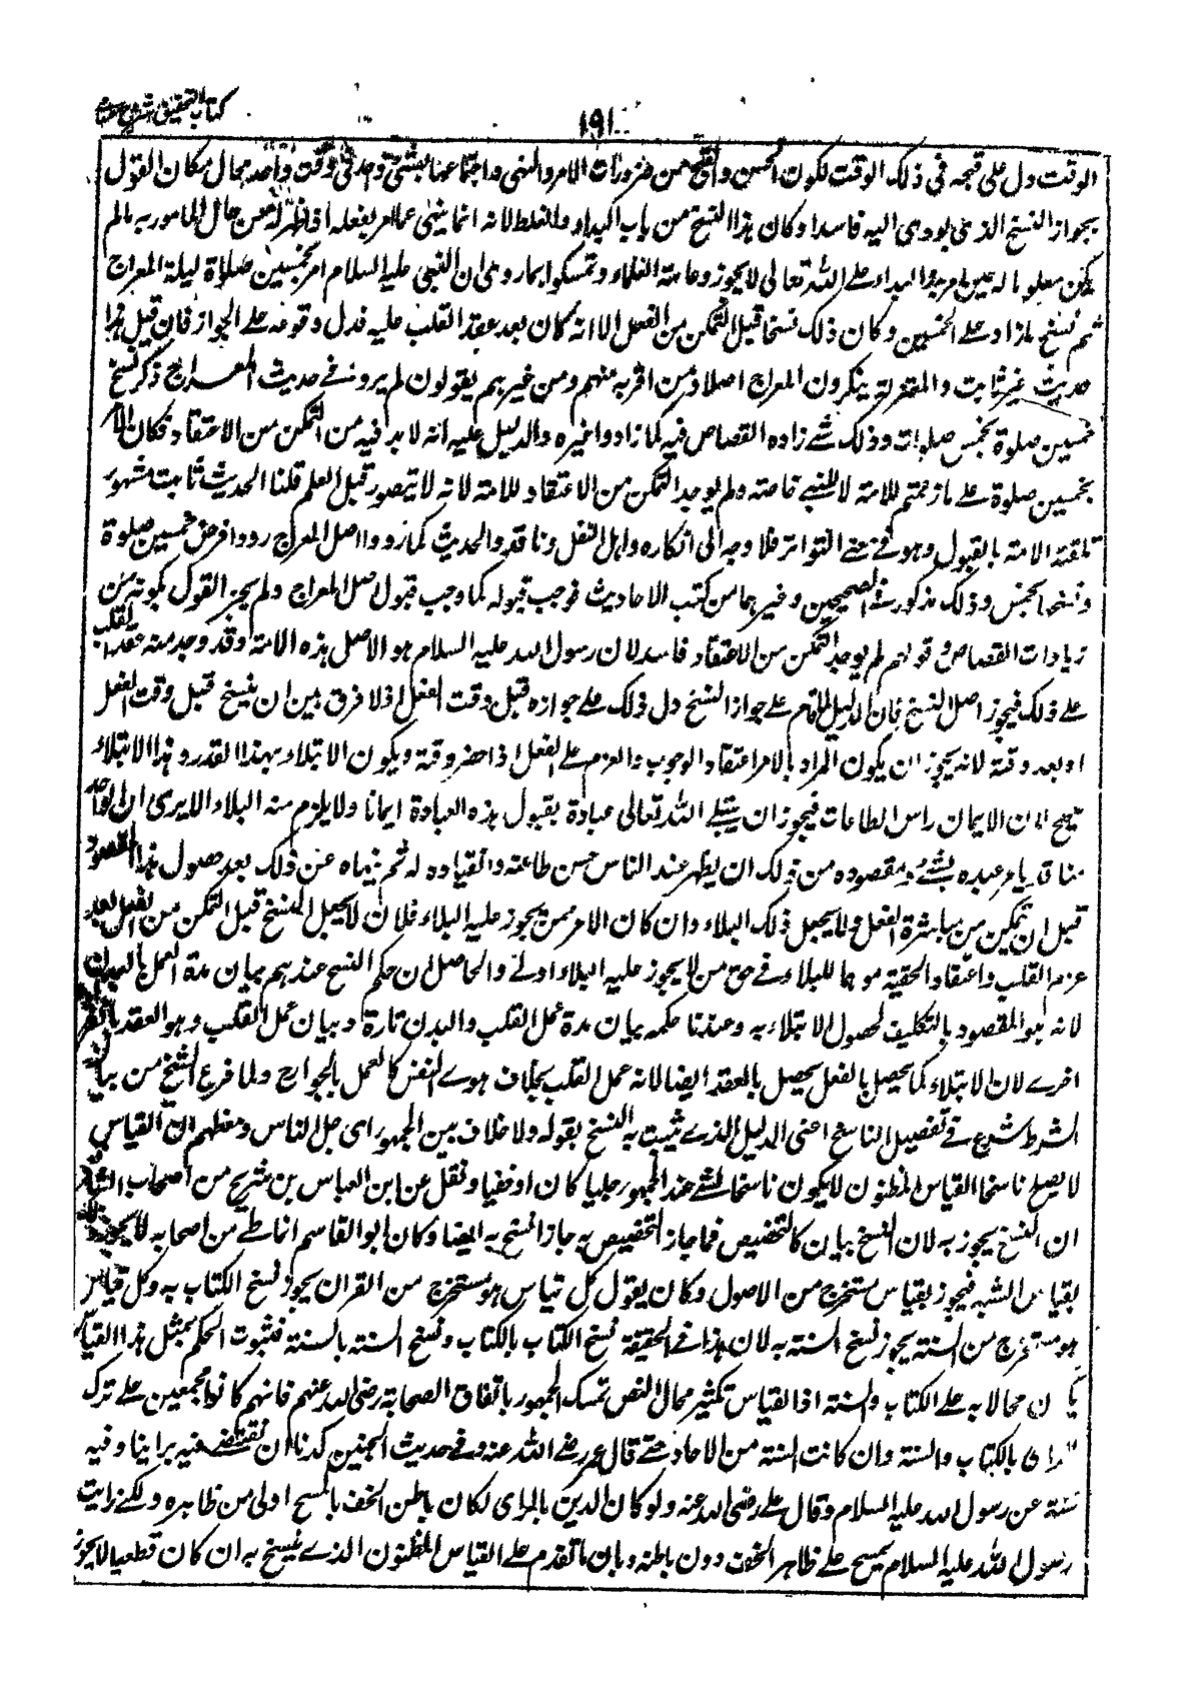 كتاب التحقيق شرح حسامى
١٩١
الوقت دل على قبحه فى ذلك الوقت لكون الحسن والقبح من ضرورات الامر والنهى واجتماعهما بشئ واحد فى وقت واحد محال فكان القول
بجواز النسخ الذى يودى اليه فاسدا وكان هذا النسخ من باب البداء والغلط لانه انما ينهى عما امر بفعله اذا ظهر له من حال المامور به مالم
يكن معلوما له حين امر به والبداء على الله تعالى لا يجوز وعامة العلماء وتمسكوا بما روى ان النبى عليه السلام امر بخمسين صلاة ليلة المعراج
ثم نسخ ما زاد على الخمس وكان ذلك نسخا قبل التمكن من الفعل الا انه كان بعد عقد القلب عليه فدل وقوعه على الجواز فان قيل هذا
حديث غير ثابت والمعتزلة ينكرون المعراج اصلا ومن اقر به منهم ومن غيرهم يقولون لم يرو فى حديث المعراج ذكر نسخ
خمسين صلوة بخمس صلوات وذلك شئ زاده القصاص فيه كما زادوا غيره والدليل عليه انه لا بد فيه من التمكن من الاعتقاد فكان الامر
بخمسين صلوة على ما زعمتم للامة لا للنبى خاصة ولم يوجد التمكن من الاعتقاد للامة لانه لا يتصور قبل العلم قلنا الحديث ثابت مشهور
تلقته الامة بالقبول وهو فى معنى التواتر فلا وجه الى انكاره واهل النقل وناقدو الحديث كما رووا اصل المعراج رووا فرض خمسين صلوة
ونسخها بخمس وذلك مذكور فى الصحيحين وغيرهما من كتب الاحاديث فوجب قبوله كما وجب قبول اصل المعراج ولم يجز القول بكونه من
زيادات القصاص وقولهم لم يوجد التمكن من الاعتقاد فاسد لان رسول الله عليه السلام هو الاصل لهذه الامة وقد وجد منه عقد القلب
على ذلك فيجوز اصل النسخ فان الدليل لما قام على جواز النسخ دل ذلك على جوازه قبل وقت الفعل اذ لا فرق بين ان ينسخ قبل وقت الفعل
او بعد وقته لانه يجوز ان يكون المراد بالامر اعتقاد الوجوب والعزم على الفعل اذا حضر وقته ويكون الابتلاء بهذا القدر وهذا الابتلاء
صحيح لان الايمان راس الطاعات فيجوز ان يبتلى الله تعالى عباده بقبول هذه العبادة ايمانا ولا يلزم منه البداء الا يرى ان الواحد
منا قد يامر عبده بشئ ومقصوده من ذلك ان يظهر عند الناس حسن طاعته وانقياده له ثم ينهاه عن ذلك بعد حصول هذا المقصود
قبل ان يتمكن من مباشرة الفعل ولا يجعل ذلك البداء وان كان الامر ممن يجوز عليه البداء فلان لا يجعل النسخ قبل التمكن من الفعل بعد
عزم القلب واعتقاد الحقية موهما للبداء فى حق من لا يجوز عليه البداء اولى والحاصل ان حكم النسخ عندهم بيان مدة العمل بالبدن
لانه هو المقصود بالتكليف لحصول الابتلاء به وعندنا حكمه بيان مدة عمل القلب والبدن تارة وبيان عمل القلب وهو العقد
اخرى لان الابتلاء كما يحصل بالفعل يحصل بالعقد ايضا لانه عمل القلب بخلاف هوى النفس كالعمل بالجوارح ولما فرغ الشيخ من بيان
الشرط شرع فى تفصيل الناسخ اعنى الدليل الذى يثبت به النسخ بقوله ولا خلاف بين الجمهور اى جل الناس ومعظمهم ان القياس
لا يصلح ناسخا القياس المظنون لا يكون ناسخا لشئ عند الجمهور جليا كان او خفيا ونقل عن ابن العباس بن شريح من اصحاب
ان النسخ يجوز به لان النسخ بيان كالتخصيص فما جاز التخصيص به جاز النسخ به ايضا وكان ابو القاسم انماطى من اصحابه لا يجوز ذلك
بقياس الشبه فيجوز بقياس مستخرج من الاصول وكان يقول كل قياس هو مستخرج من القران يجوز نسخ الكتاب به وكل قياس
هو مستخرج من السنة يجوز نسخ السنة به لان هذا فى الحقيقة نسخ الكتاب بالكتاب ونسخ السنة بالسنة فثبوت الحكم بمثل هذا القياس
يكون محالا به على الكتاب والسنة اذ القياس تكثير محال النص تمسك الجمهور باتفاق الصحابة رضى الله عنهم فانهم كانوا مجمعين على ترك
الراى بالكتاب والسنة وان كانت السنة من الاحاد حتى قال عمر رضى الله عنه فى حديث الجنين كدنا ان نقضى فيه براينا وفيه
سنة عن رسول الله عليه السلام وقال على رضى الله عنه ولو كان الدين بالراى لكان باطن الخف بالمسح اولى من ظاهره ولكنى رايت
رسول الله عليه السلام يمسح على ظاهر الخف دون باطنه وبان ما تقدم على القياس المظنون الذى ينسخ به ان كان قطعيا لا يجوز